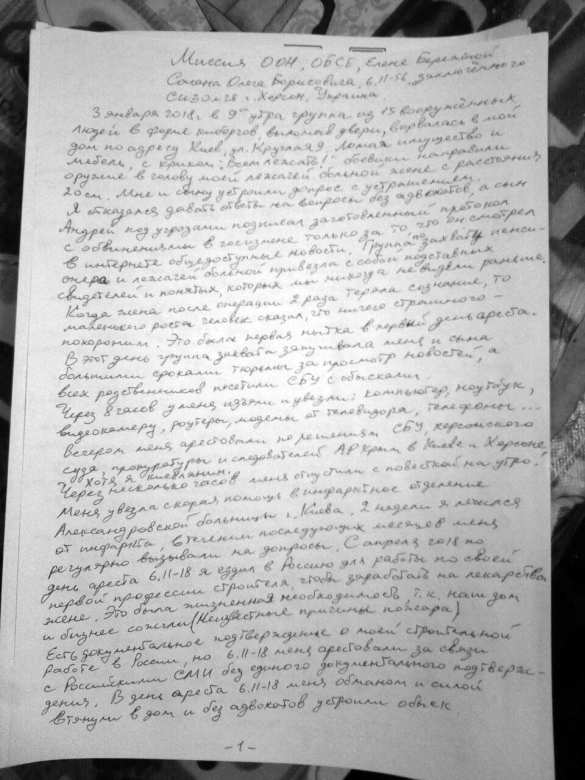 Миссия ООН, ОБСЕ, Елене Бережной
Сагана Олега Борисовича, 6.11-56, заключённого
СИЗО №28 г. Херсон, Украина
3 января 2018г в 9 утра группа из 15 вооружённых
людей в форме киборгов, выломав двери, ворвалась в мой
дом по адресу Киев, ул. Круглая 9. Ломая имущество и
мебель, с криком: "Всем лежать!" боевики направили
оружие в голову моей лежачей больной жене с расстояния
20 см. Мне и сыну устроили допрос с устрашением.
Я отказался давать ответы на вопросы без адвокатов, а сын
Андрей под угрозами подписал заготовленный протокол
с обвинениями в госизмене только за то что он смотрел
в интернете общедоступные новости. Группа по захвату пенси-
онера и лежачей больной привезла с собой подставных
свидетелей и понятых, которых мы никогда не видели раньше.
Когда жена после операции 2 раза теряла сознание, то
маленького роста человек сказал, что ничего страшного -
похороним. Это была первая пытка в первый день ареста.
В этот день группа захвата запугивала меня и сына
большими сроками тюрьмы за просмотр новостей, а
всех родственников посетили СБУ с обысками.
Через 8 часов у меня изъяли и увезли: компьютер, ноутбук,
видеокамеру, роутеры, модемы от телевизора, телефоны ...
Вечером меня арестовали по решениям СБУ, херсонского
суда, прокуратуры и следователей АР Крым в Киеве и Херсоне
?! Хотя я киевлянин.
Через несколько часов меня отпустили с повесткой на утро!
Меня увезла скорая помощь в инфарктное отделение
Александровской больницы г. Киева. 2 недели я лечился
от инфаркта, в течении последующих месяцев меня
регулярно вызывали на допросы. С апреля 2018 по
день ареста 6.11-18 я ездил в Россию для работы по своей
первой профессии строителя, чтобы заработать на лекарства
жене. Это была жизненная необходимость т.к. наш дом
и бизнес сожгли (Неизвестные причины пожара)
Есть документальное подтверждение о моей строительной
работе в России, но 6.11-18 меня арестовали за связи
с Российскими СМИ без единого документального подтверж-
дения. В день ареста 6.11-18 меня обманом и силой
втянули в дом и без адвокотов устроили обыск
-1-